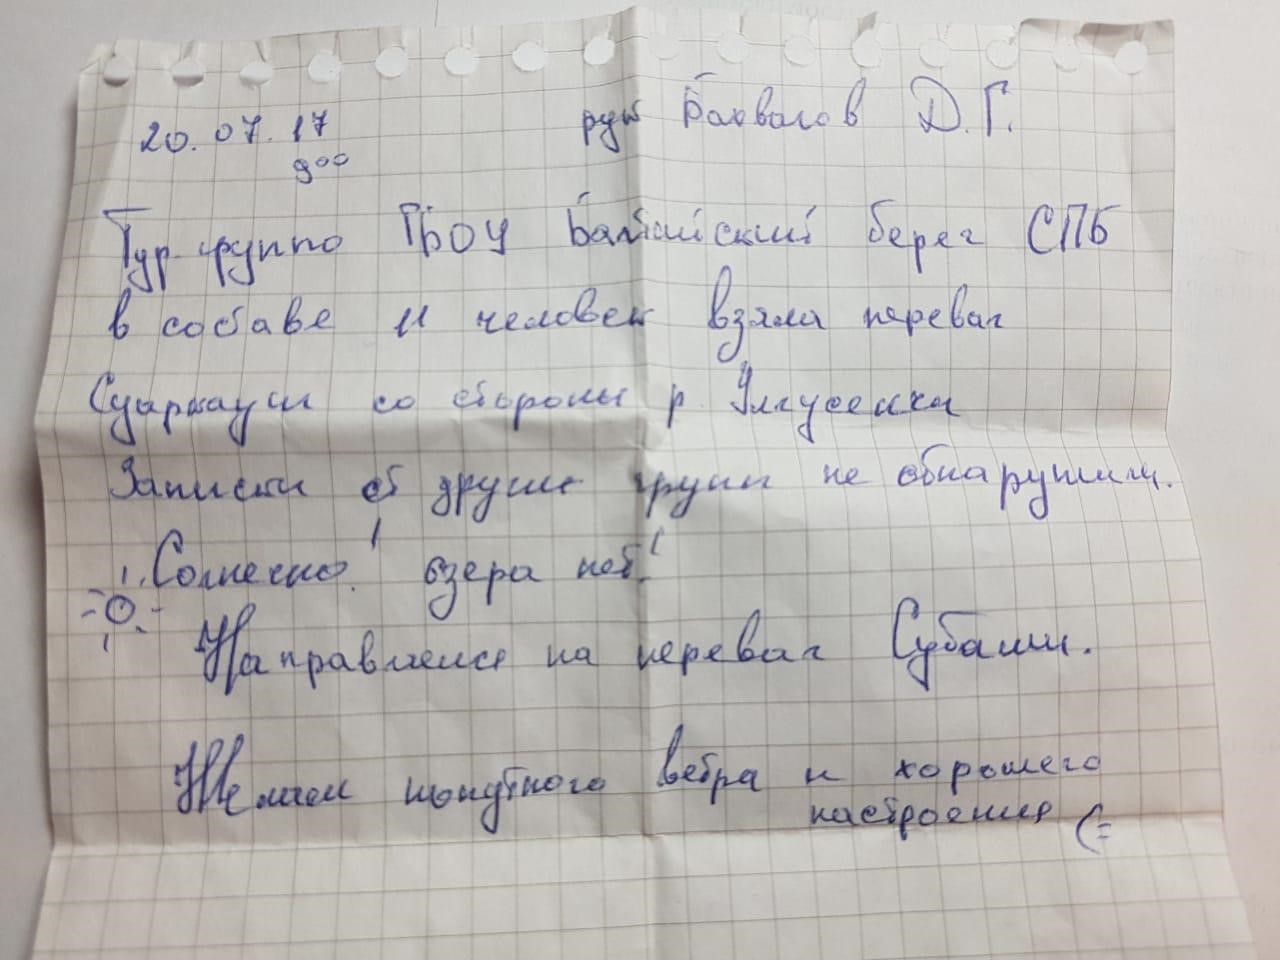 20.07.17 рук Бахвалов Д.Г.
9⁰⁰
Тур группа ГБОУ Балтийский берег СПБ
в составе 11 человек взяла перевал
со стороны р. Уллусенчи
Записки от других групп не обнаружили.
Солнечно! озера нет!
Направляемся на перевал Субаши.
Желаем попутного ветра и хорошего
настроения (=